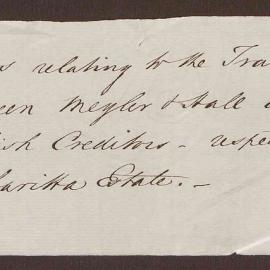 s relating to the Tra
een Meyler & Hall a
ish Creditors - respe
aritta Estate. -